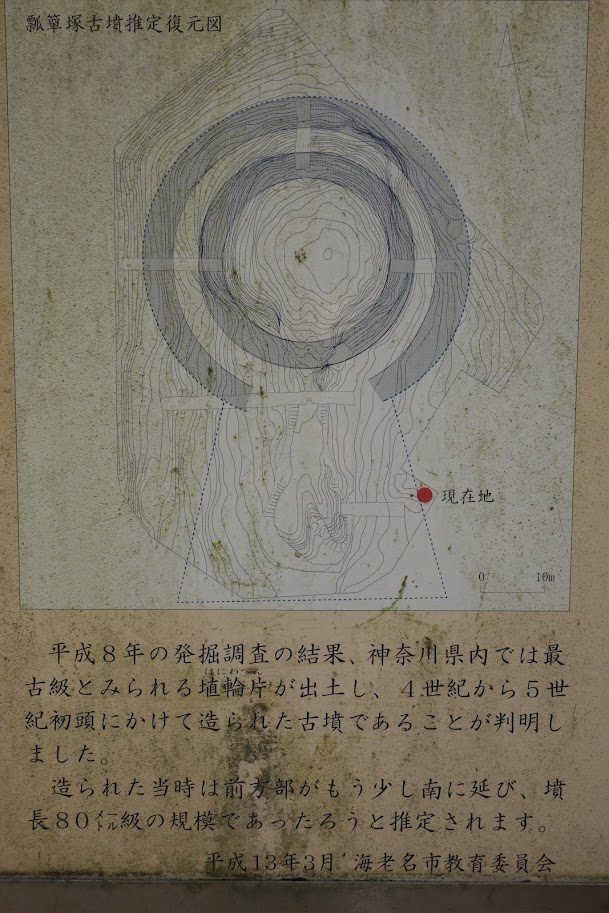 瓢箪塚古墳推定復元図
現在地
0 10m
平成8年の発掘調査の結果、神奈川県内では最
古級とみられる埴輪片が出土し、4世紀から5世
紀初頭にかけて造られた古墳であることが判明し
ました。
造られた当時は前方部がもう少し南に延び、墳
長80メートル級の規模であったろうと推定されます。
平成13年3月 海老名市教育委員会